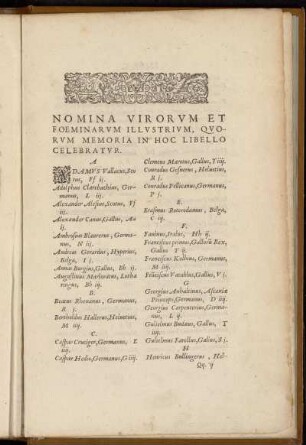 NOMINA VIRORVM ET
FOEMINARVM ILLVSTRIVM, QVO-
RVM MEMORIA IN HOC LIBELLO
CELEBRATVR.
A
ADAMVS Vallaceus, Sco-
tus, Ff ij.
Adolphus Clarebachius, Ger-
manus, L iij.
Alexander Alesius, Scotus, Ff
iij.
Alexander Canus, Gallus, Aa
ij.
Ambrosius Blaurerus, Germa-
nus, N iij.
Andreas Gerardus, Hyperius,
Belga, I j.
Annas Burgius, Gallus, Bb ij.
Augustinus Marloratus, Lotha
ringus, Bb iij.
B.
Beatus Rhenanus, Germanus,
R j.
Bertholdus Hallerus, Heluetius,
M iiij.
C.
Caspar Cruciger, Germanus, E
iiij.
Caspar Hedio, Germanus, G iij.
Clemens Marotus, Gallus, Y iij.
Conradus Gesnerus, Heluetius,
R j.
Conradus Pellicanus, Germanus,
P j.
E.
Erasmus Roterodamus, Belga,
C iij.
F.
Faninus, Italus, Hh ij.
Franciscus primus, Gallorū Rex,
Gallus T ij.
Franciscus Kolbius, Germanus,
M iij.
Feliciscus Vatablus, Gallus, V j.
G
Georgius Anhaltinus, Ascaniæ
Princeps, Germanus, D iiij.
Georgius Carpentarius, Germa-
nus, L ij.
Gulielmus Budæus, Gallus, T
iiij.
Gulielmus Farellus, Gallus, S j.
H
Henricus Bullingerus, Hel-
Qq. ij